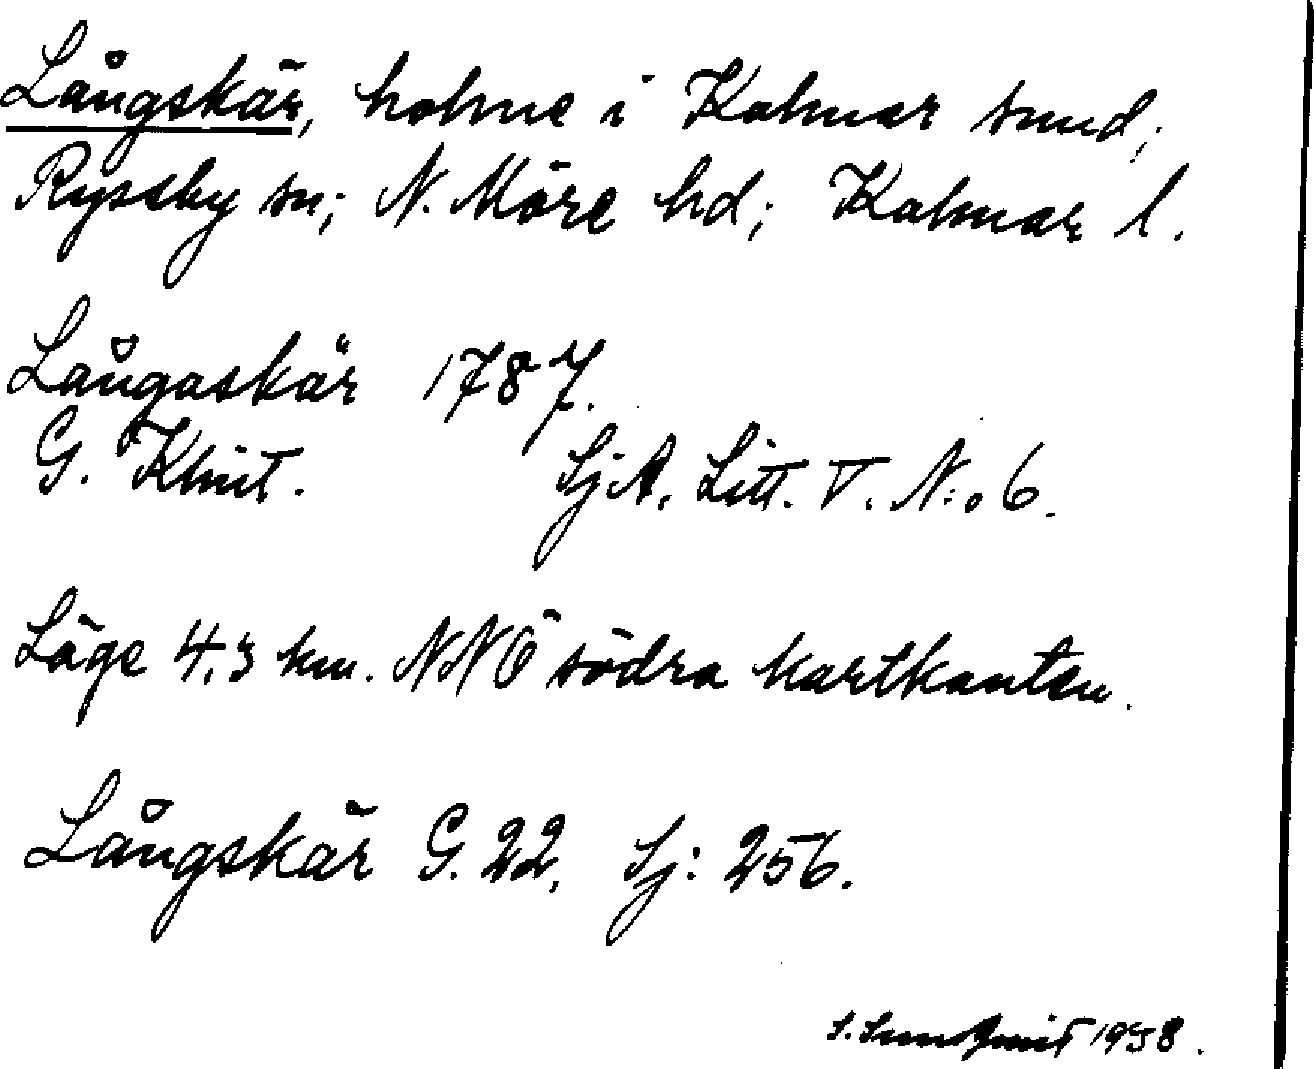 Långskär, holme i Kalmar sund;
Ryssby sn; N. Möre hd; Kalmar l.
Långaskär 1787.
G. Klint. SjA. Litt. V. N:o 6.
Läge 4,3 km. NNÖ södra kartkanten.
Långskär G. 22, Sj: 256.
S. Sundqvist 1938.